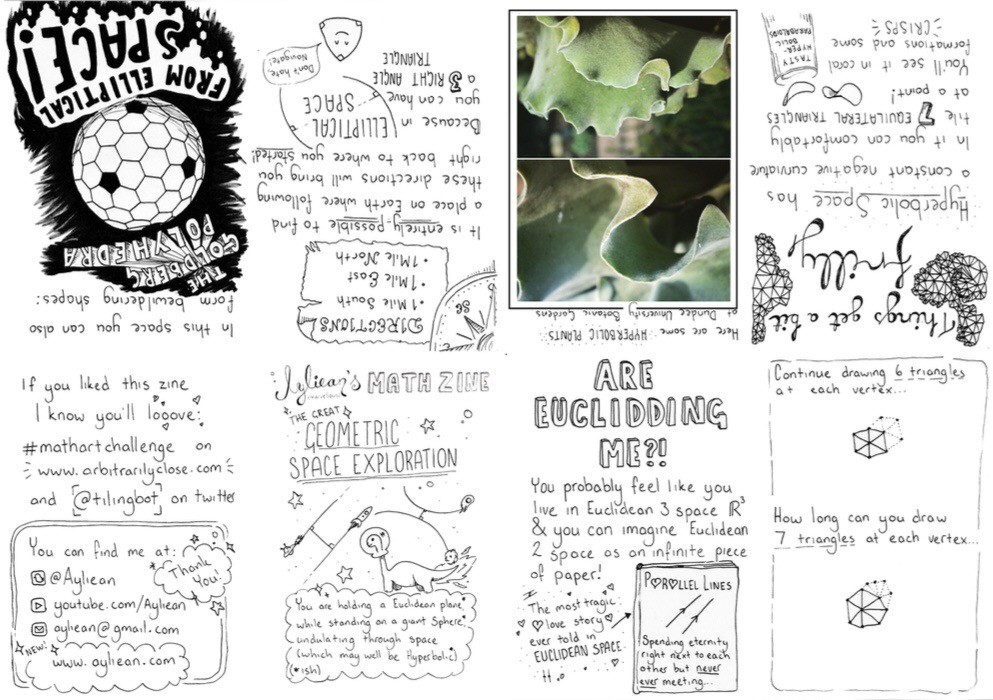 Ayliean's MATH ZINE
THE GREAT
GEOMETRIC
SPACE EXPLORATION
You are holding a Euclidean plane,
while standing on a giant Sphere,
undulating through space
(which may well be Hyperbolic)
(*ish)
ARE
EUCLIDDING
ME?!
You probably feel like you
live in Euclidean 3 space ℝ³
& you can imagine Euclidean
2 space as an infinite piece
of paper!
The most tragic
love story
ever told in
EUCLIDEAN SPACE
PARALLEL LINES
Spending eternity
right next to each
other but never
ever meeting...
Continue drawing 6 triangles
at each vertex...
How long can you draw
7 triangles at each vertex...
Things get a bit
frilly
Hyperbolic Space has
a constant negative curvature
In it you can comfortably
tile 7 EQUILATERAL TRIANGLES
at a point!
You'll see it in coral
formations and some
CRISPS
TASTY
HYPER-
BOLIC
PARABALOIDS
Here are some HYPERBOLIC PLANTS
at Dundee University Botanic Gardens
DIRECTIONS
• 1 Mile South
• 1 Mile East
• 1 Mile North
SE
It is entirely possible to find
a place on Earth where following
these directions will bring you
right back to where you started!
Because in
ELLIPTICAL
SPACE
you can have
a 3 RIGHT ANGLE
TRIANGLE
Don't hate,
Navigate!
In this space you can also
form bewildering shapes:
THE
GOLDBERG
POLYHEDRA
FROM ELLIPTICAL
SPACE!
If you liked this zine
I know you'll looove:
#mathartchallenge on
www.arbitrarilyclose.com
and [@tilingbot] on twitter
You can find me at:
Thank
You!
@Ayliean
youtube.com/Ayliean
ayliean@gmail.com
NEW!
www.ayliean.com